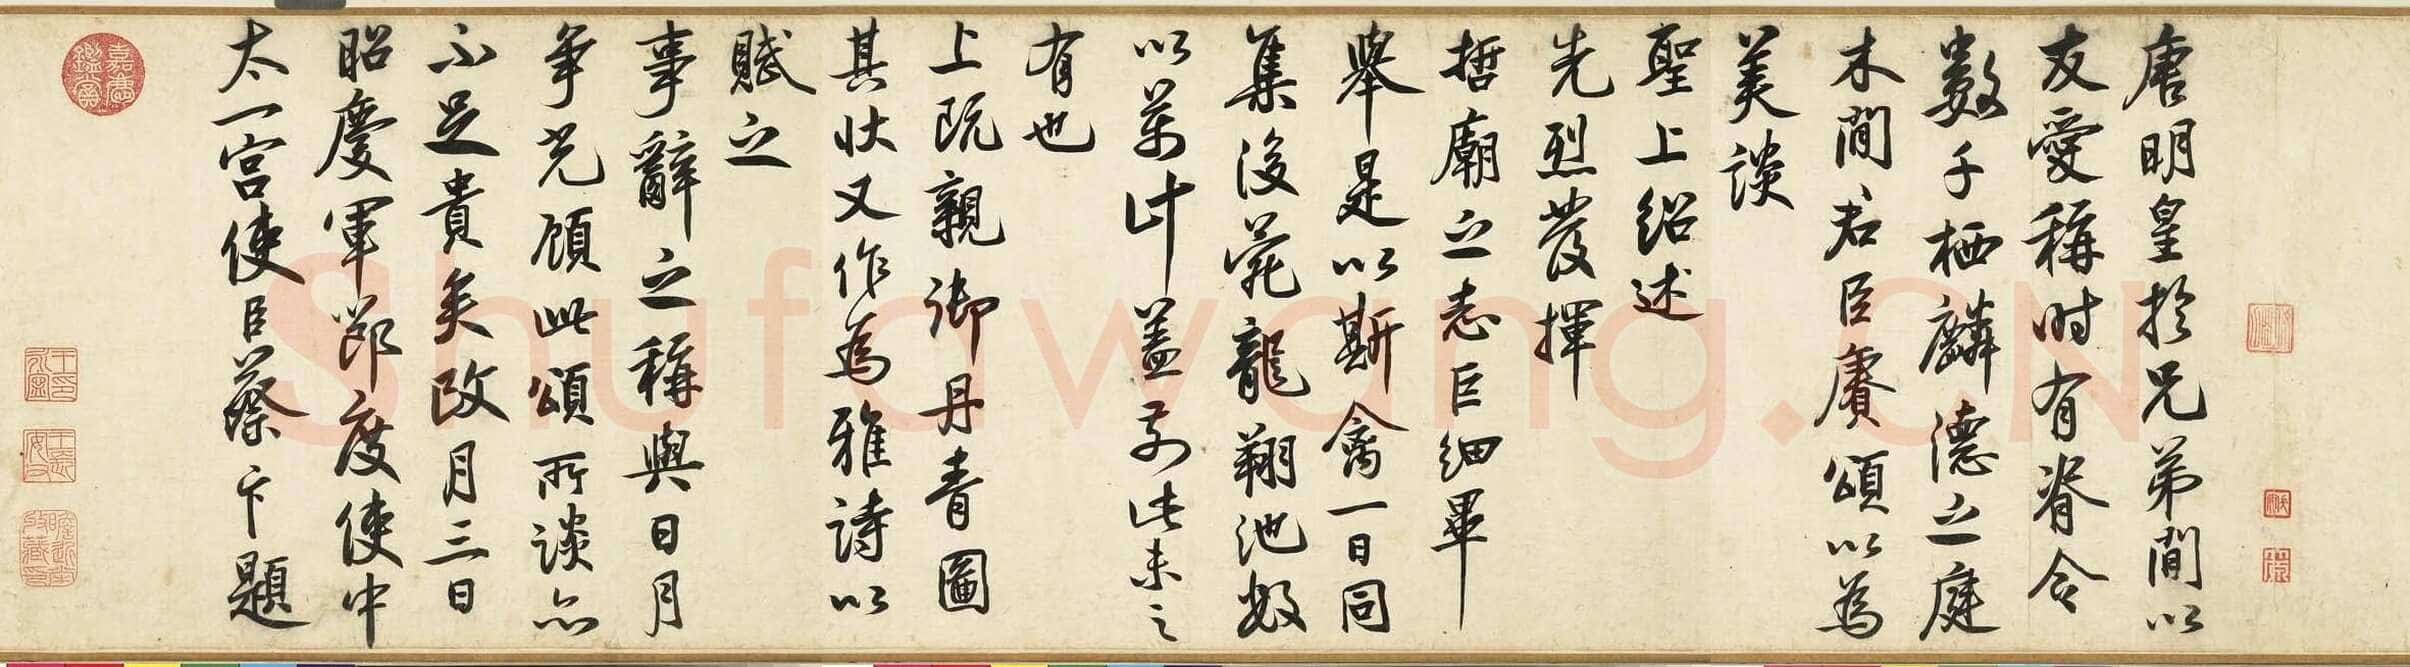 唐明皇於兄弟間以
友愛稱时有脊令
數千栖麟德之庭
木間君臣賡頌以為
美談
聖上紹述
先烈發揮
哲廟之志巨细畢
舉是以斯禽一日同
集後苑龍翔池数
以萬计盖前此未之
有也
上既親御丹青圖
其状又作為雅詩以
賦之
事辭之稱與日月
争光顾此頌所談亦
不足貴矣政月三日
昭慶軍節度使中
太一宮使臣蔡卞題
嘉慶鑑賞
Shufawang.CN